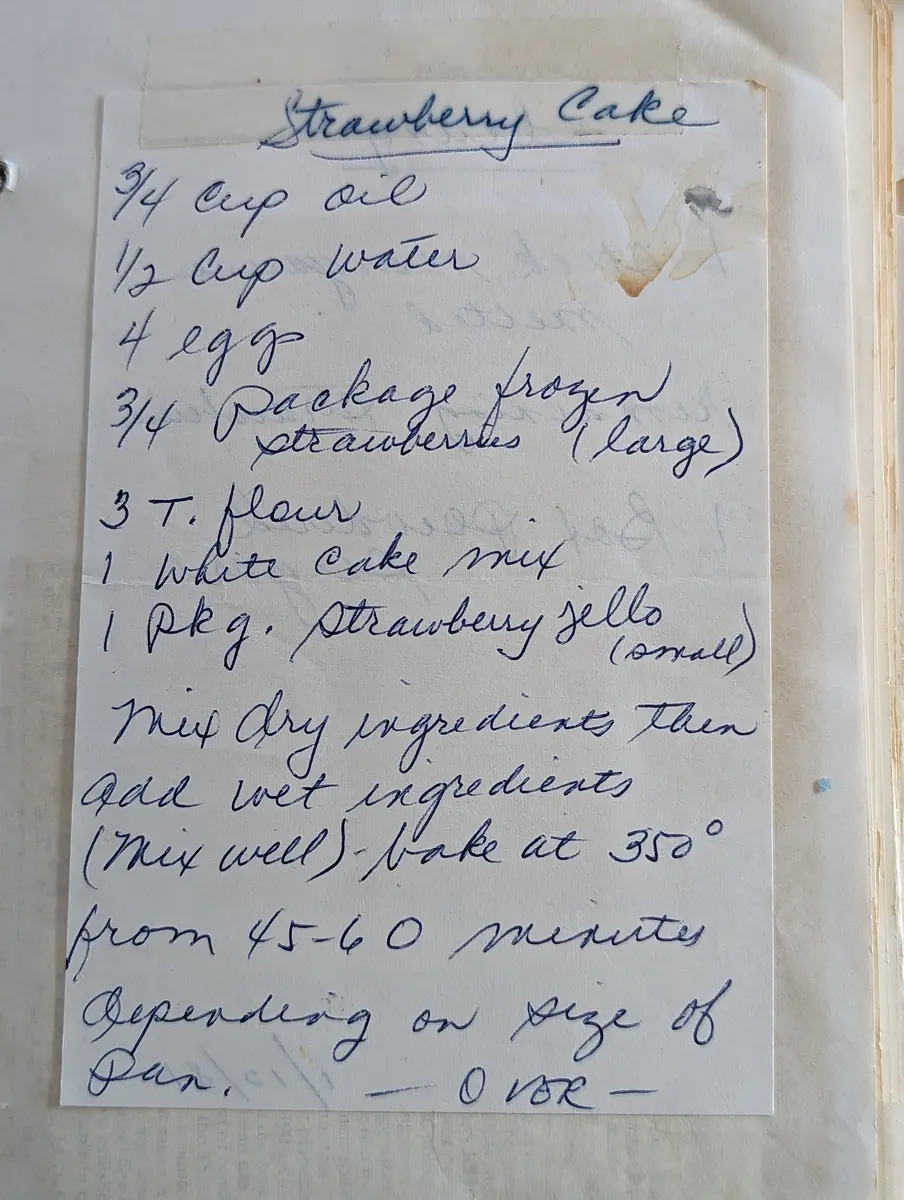 Strawberry Cake
3/4 cup oil
1/2 cup water
4 eggs
3/4 Package frozen
strawberries (large)
3 T. flour
1 White Cake mix
1 pkg. Strawberry jello
(small)
Mix dry ingredients then
add wet ingredients
(Mix well) - bake at 350°
from 45-60 minutes
Depending on size of
Pan. — OVER —